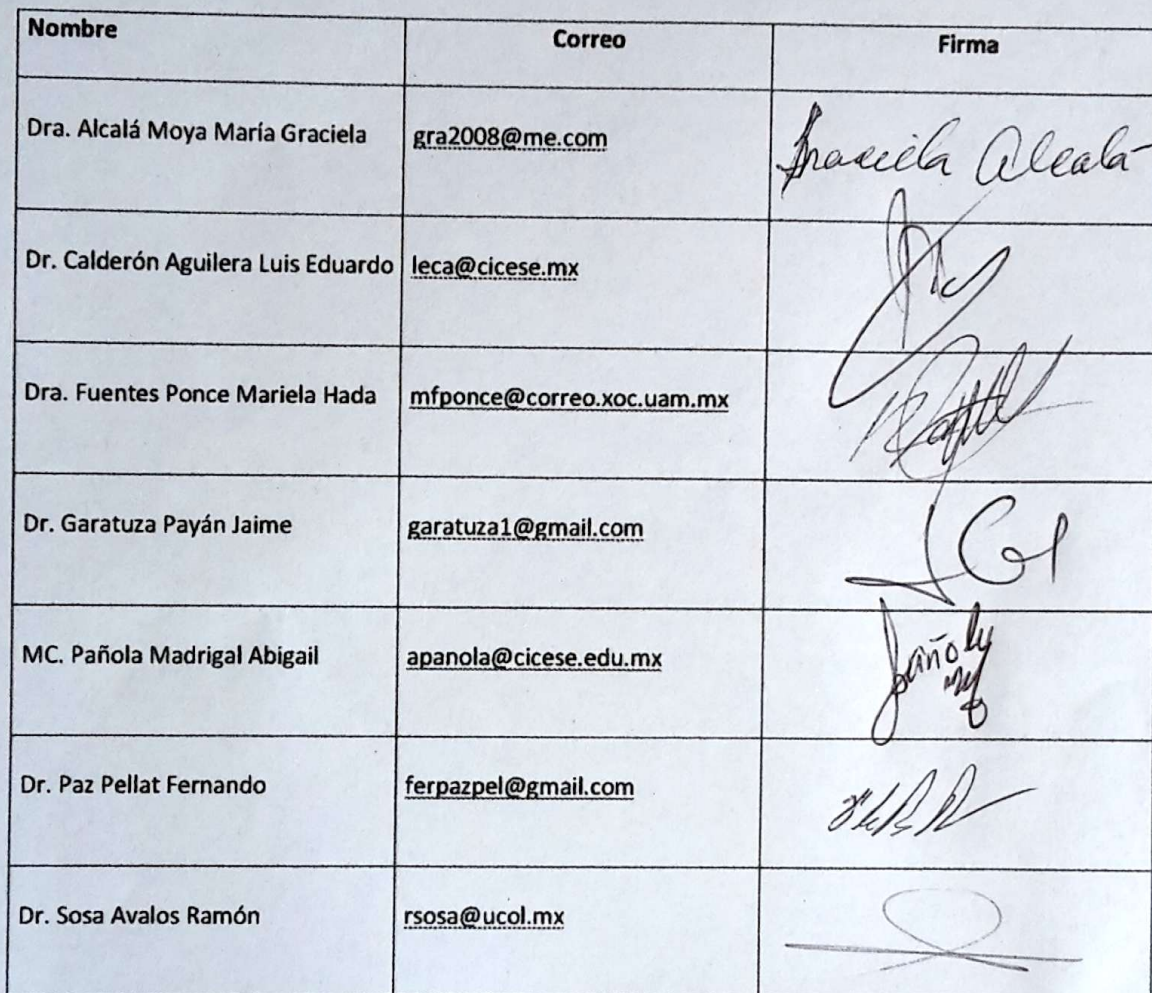 Nombre Correo Firma
Dra. Alcalá Moya María Graciela gra2008@me.com Graciela Alcalá
Dr. Calderón Aguilera Luis Eduardo leca@cicese.mx
Dra. Fuentes Ponce Mariela Hada mfponce@correo.xoc.uam.mx
Dr. Garatuza Payán Jaime garatuza1@gmail.com
MC. Pañola Madrigal Abigail apanola@cicese.edu.mx
Dr. Paz Pellat Fernando ferpazpel@gmail.com
Dr. Sosa Avalos Ramón rsosa@ucol.mx